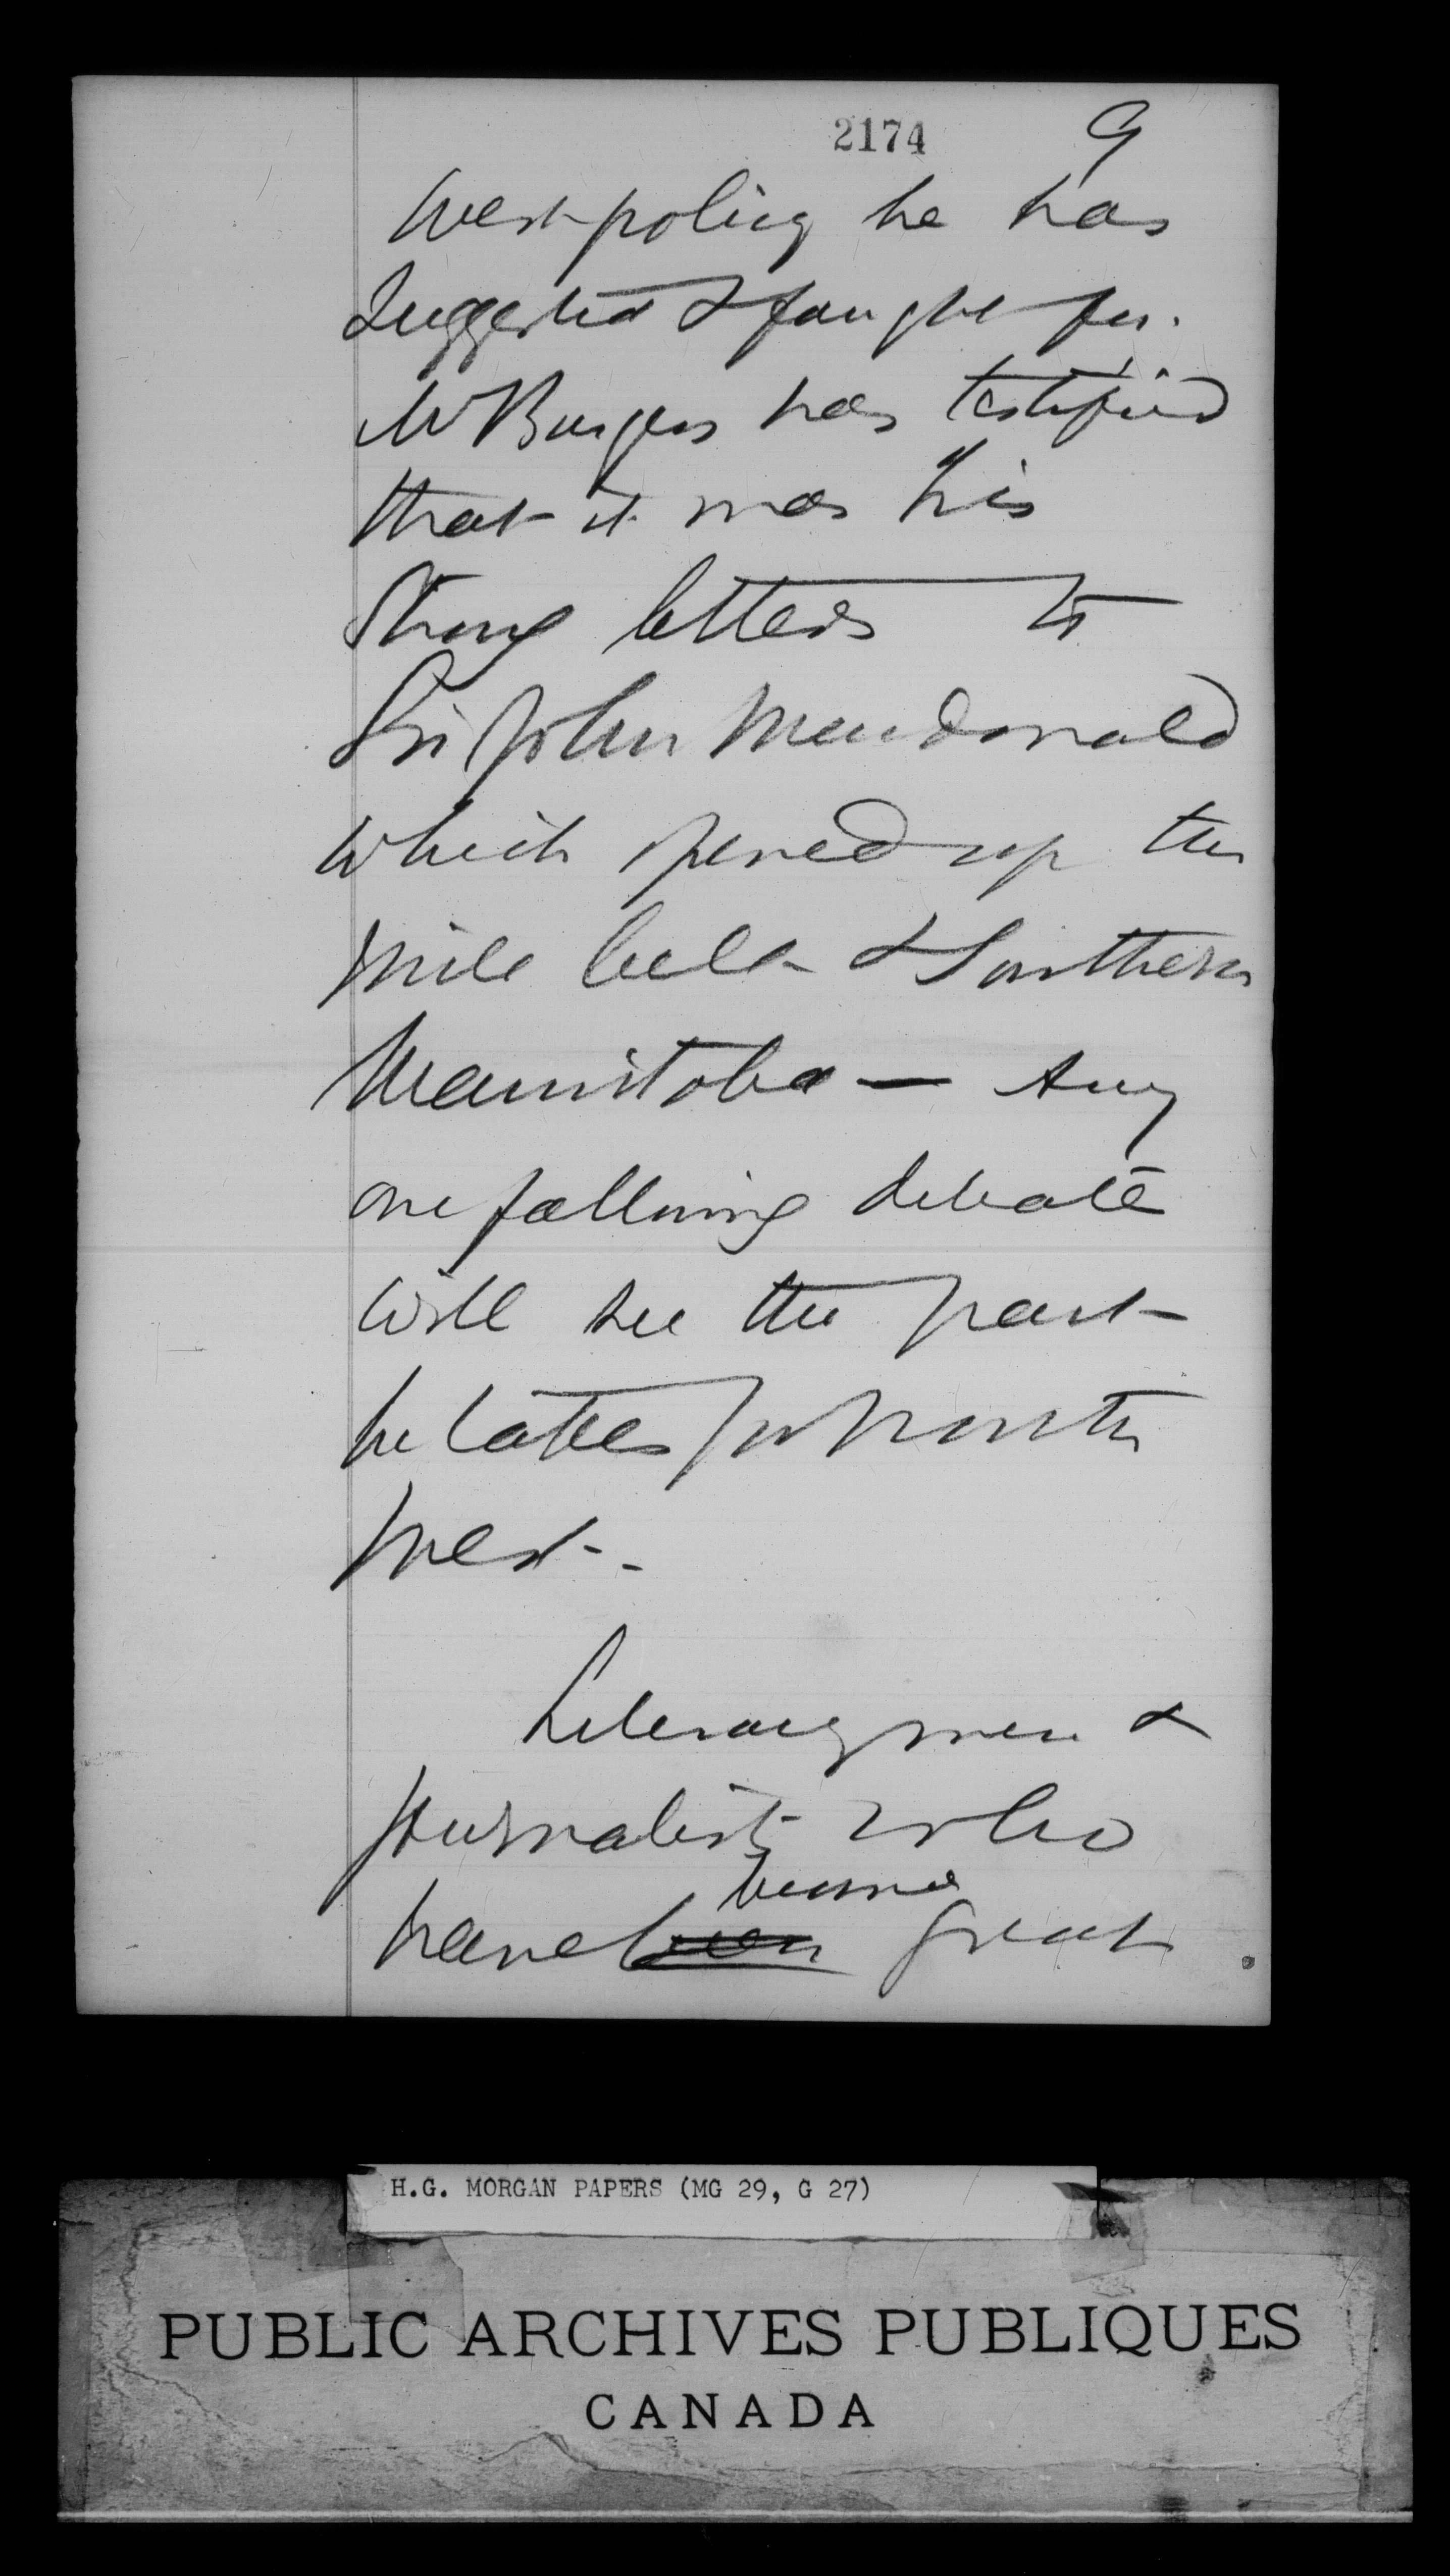 2174 9
West policy he has
suggested & fought for.
Mr Burgess has testified
that it was his
strong letters to
Sir John Macdonald
which opened up the
mile belt & Southern
Manitoba — Any
one following debate
will see the part
he takes for North
West.
Literary men &
journalists who
have been become great
H.G. MORGAN PAPERS (MG 29, G 27)
PUBLIC ARCHIVES PUBLIQUES
CANADA